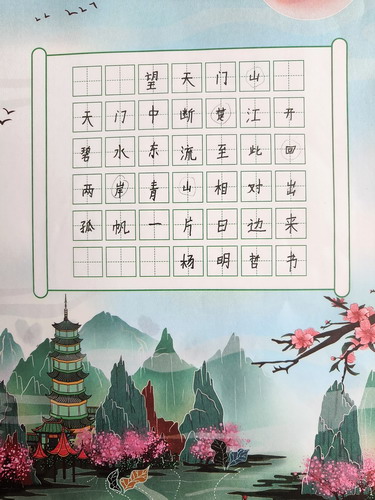 望天门山
天门中断楚江开
碧水东流至此回
两岸青山相对出
孤帆一片日边来
杨明哲书